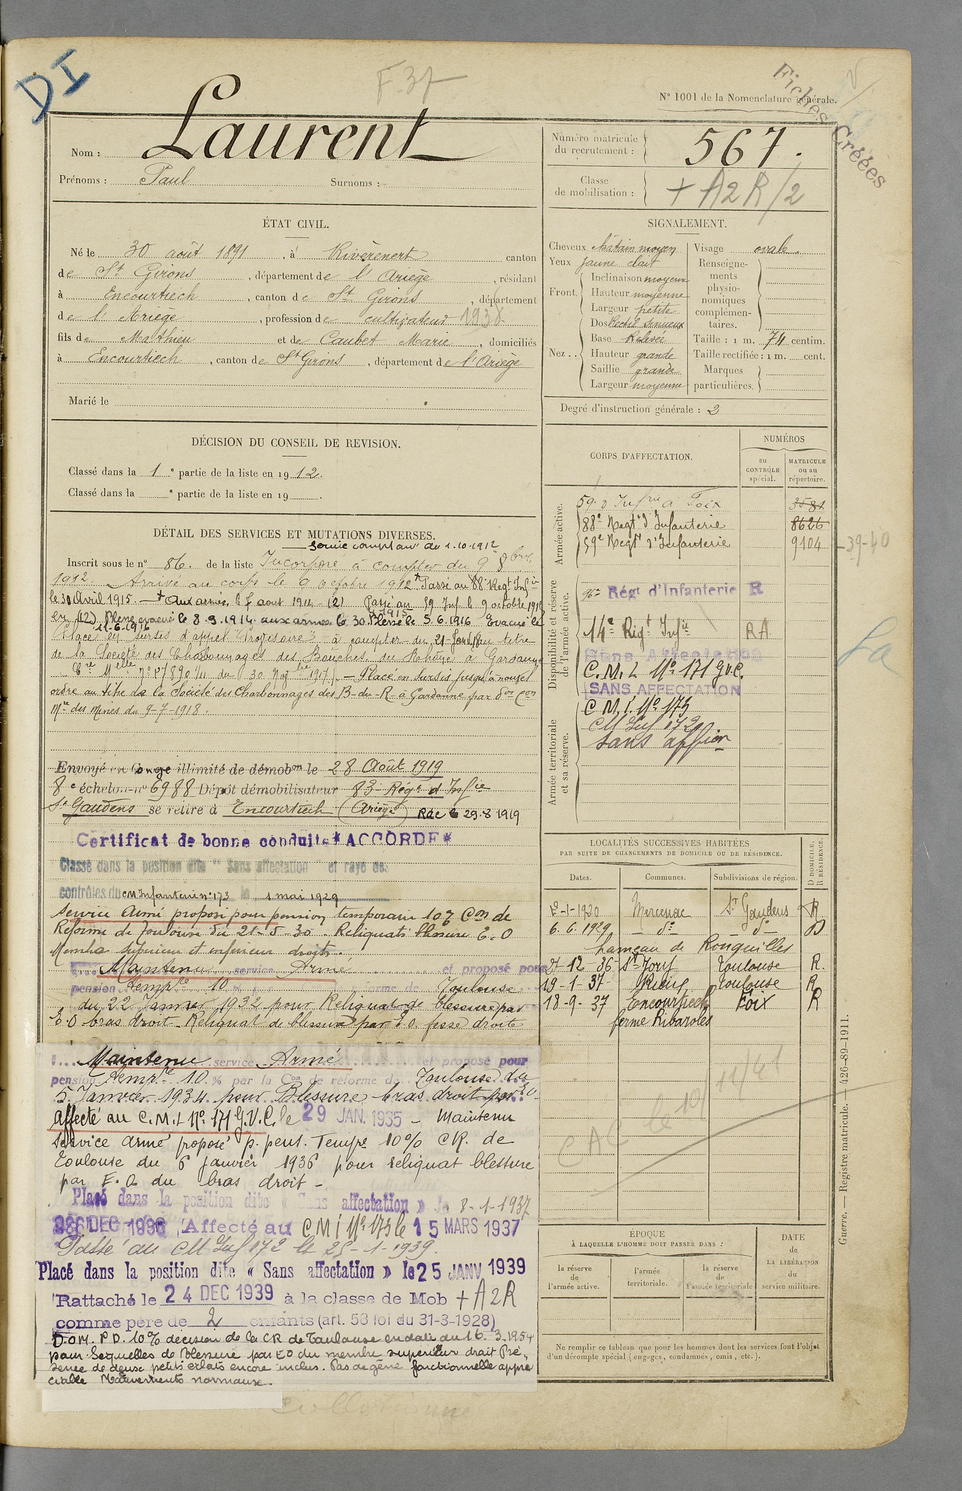 DI
F. 37
N° 1001 de la Nomenclature générale.
Fiches Créées
Nom : Laurent
Prénoms : Paul Surnoms :
Numéro matricule du recrutement : 567.
Classe de mobilisation : + A2R/2
ÉTAT CIVIL.
Né le 30 août 1891, à Rivèrenert canton
de St Girons, département de l'Ariège, résidant
à Encourtiech, canton de St Girons, département
de l'Ariège, profession de cultivateur 1938
fils de Mathieu et de Caubet Marie, domiciliés
à Encourtiech, canton de St Girons, département de l'Ariège
Marié le
SIGNALEMENT.
Cheveux châtain moyen
Yeux jaune clair
Front. Inclinaison moyenne
Hauteur moyenne
Largeur petite
Nez... Dos Rectil. sinueux
Base Relevée
Hauteur grande
Saillie grande
Largeur moyenne
Visage ovale
Renseignements physionomiques complémentaires.
Taille : 1 m. 74 centim.
Taille rectifiée : 1 m. cent.
Marques particulières.
Degré d'instruction générale : 3
DÉCISION DU CONSEIL DE REVISION.
Classé dans la 1e partie de la liste en 1912.
Classé dans la e partie de la liste en 19 .
DÉTAIL DES SERVICES ET MUTATIONS DIVERSES.
Service comptant du 1.10.1912
Inscrit sous le n° 86. de la liste Incorporé à compter du 9 8bre
1912 Arrivé au corps le 9 octobre 1912 Passé au 88e Regt Infie
le 30 Avril 1915. Aux armées le 7 aout 1914 (2) Passé au 59 Inf. le 9 octobre 1915
(2) Blessé évacué le 8.9.1914 aux armées le 30. Blessé le 5.6.1916 Evacué le
11-6-1916
Placé en sursis d'appel à compter du au titre
de la Société des Charbonnages des Bouches du Rhône à Gardanne
du 30 1917. Placé en sursis jusqu'à nouvel
ordre au titre de la Société des Charbonnages des B-du-R. à Gardanne par don Con
Mre des Mines du 9-7-1918.
Envoyé en Congé illimité de démobon le 28 Août 1919
8e échelon n° 6988 Dépôt démobilisateur 83e Régt d'Infie
St Gaudens se retire à Encourtiech (Ariège) Rdc le 29.8.1919
Certificat de bonne conduite "ACCORDÉ"
Classé dans la position dite "Sans affectation" et rayé des
contrôles du CM Infanterie n° 173 le 1 mai 1929
Service Armé proposé pour pension temporaire 10% Con de
Réforme de Toulouse du 21-5-30. Reliquats blessure E.O
Membre supérieur et inférieur droits.
Maintenu service Armé et proposé pour
pension Tempre 10 % réforme de Toulouse
du 22 Janvier 1932 pour Reliquat de blessure par
E.O bras droit. Reliquat de blessure par E.O. fesse droite
Maintenu service Armé et proposé pour
pension Tempre 10 % par la Con de réforme de Toulouse du
5 Janvier 1934 pour Blessure bras droit par E.O.
Affecté au C.M.I. N° 171 G.V.C. le 29 JAN. 1935 - Maintenu
service armé proposé p. pens. Tempre 10% CR. de
Toulouse du 6 janvier 1936 pour reliquat blessure
par E.O. du bras droit -
Placé dans la position dite « Sans affectation » le 8-1-1937
26 DEC 1936 Affecté au C M I N° 173 le 15 MARS 1937
Passé au CM Inf 172 le 25-1-1939.
Placé dans la position dite « Sans affectation » le 25 JANV 1939
Rattaché le 24 DEC 1939 à la classe de Mob + A2R
comme père de 2 enfants (art. 58 loi du 31-3-1928)
D.O.M. P.D. 10% décision de la CR de Toulouse en date du 16.3.1954
pour Sequelles de blessure par EO du membre supérieur droit Pré
sence de deux petits éclats encore inclus. Pas de gêne fonctionnelle appré
ciable Mouvements normaux.
CORPS D'AFFECTATION.
NUMÉROS
au CONTRÔLE spécial.
MATRICULE ou au répertoire.
Armée active.
59e d'Infrie à Foix 3581
88e Regt d'Infanterie 8626
59e Regt d'Infanterie 9104
39-40
Disponibilité et réserve de l'armée active.
96e Régt d'Infanterie R
14e Régt Infie RA
Sans Affectation
C.M.I. N° 171 G.V.C.
SANS AFFECTATION
Armée territoriale et sa réserve.
C.M.I. N° 173
CM Inf 172
Sans affion
LOCALITÉS SUCCESSIVES HABITÉES
PAR SUITE DE CHANGEMENTS DE DOMICILE OU DE RÉSIDENCE.
Dates. Communes. Subdivisions de région. D DOMICILE, R RÉSIDENCE.
2-1-1920 Mercenac St Gaudens R
6.6.1929 do do D
hameau de Rouquilles
27-12-36 St Jory Toulouse R.
19-1-37 Rieux Toulouse R
18-9-37 Encourtiech Foix R
ferme Ribaroles
CAC le 10/11/41
ÉPOQUE
À LAQUELLE L'HOMME DOIT PASSER DANS :
la réserve de l'armée active.
l'armée territoriale.
la réserve de l'armée territoriale
DATE de LA LIBÉRATION du service militaire.
Ne remplir ce tableau que pour les hommes dont les services font l'objet
d'un décompte spécial (engagés, condamnés, omis, etc.).
Guerre. — Registre matricule. — 426-89-1911.